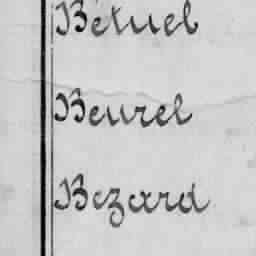 Bétuel
Beurel
Bezard